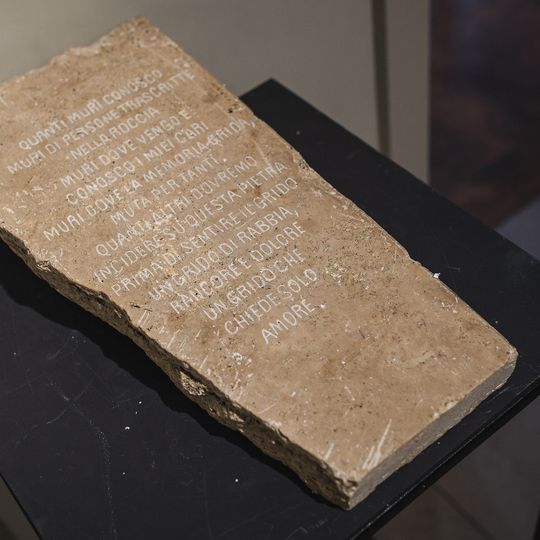 QUANTI MURI CONOSCO
MURI DI PERSONE TRASCRITTE
NELLA ROCCIA
MURI DOVE VENGO E
CONOSCO I MIEI CARI
MURI DOVE LA MEMORIA GRIDA
MUTA PER TANTI.
QUANTI ALTRI DOVREMO
INCIDERE SU QUESTA PIETRA
PRIMA DI SENTIRE IL GRIDO
UN GRIDO DI RABBIA,
RANCORE E DOLORE
UN GRIDO CHE
CHIEDE SOLO
AMORE.